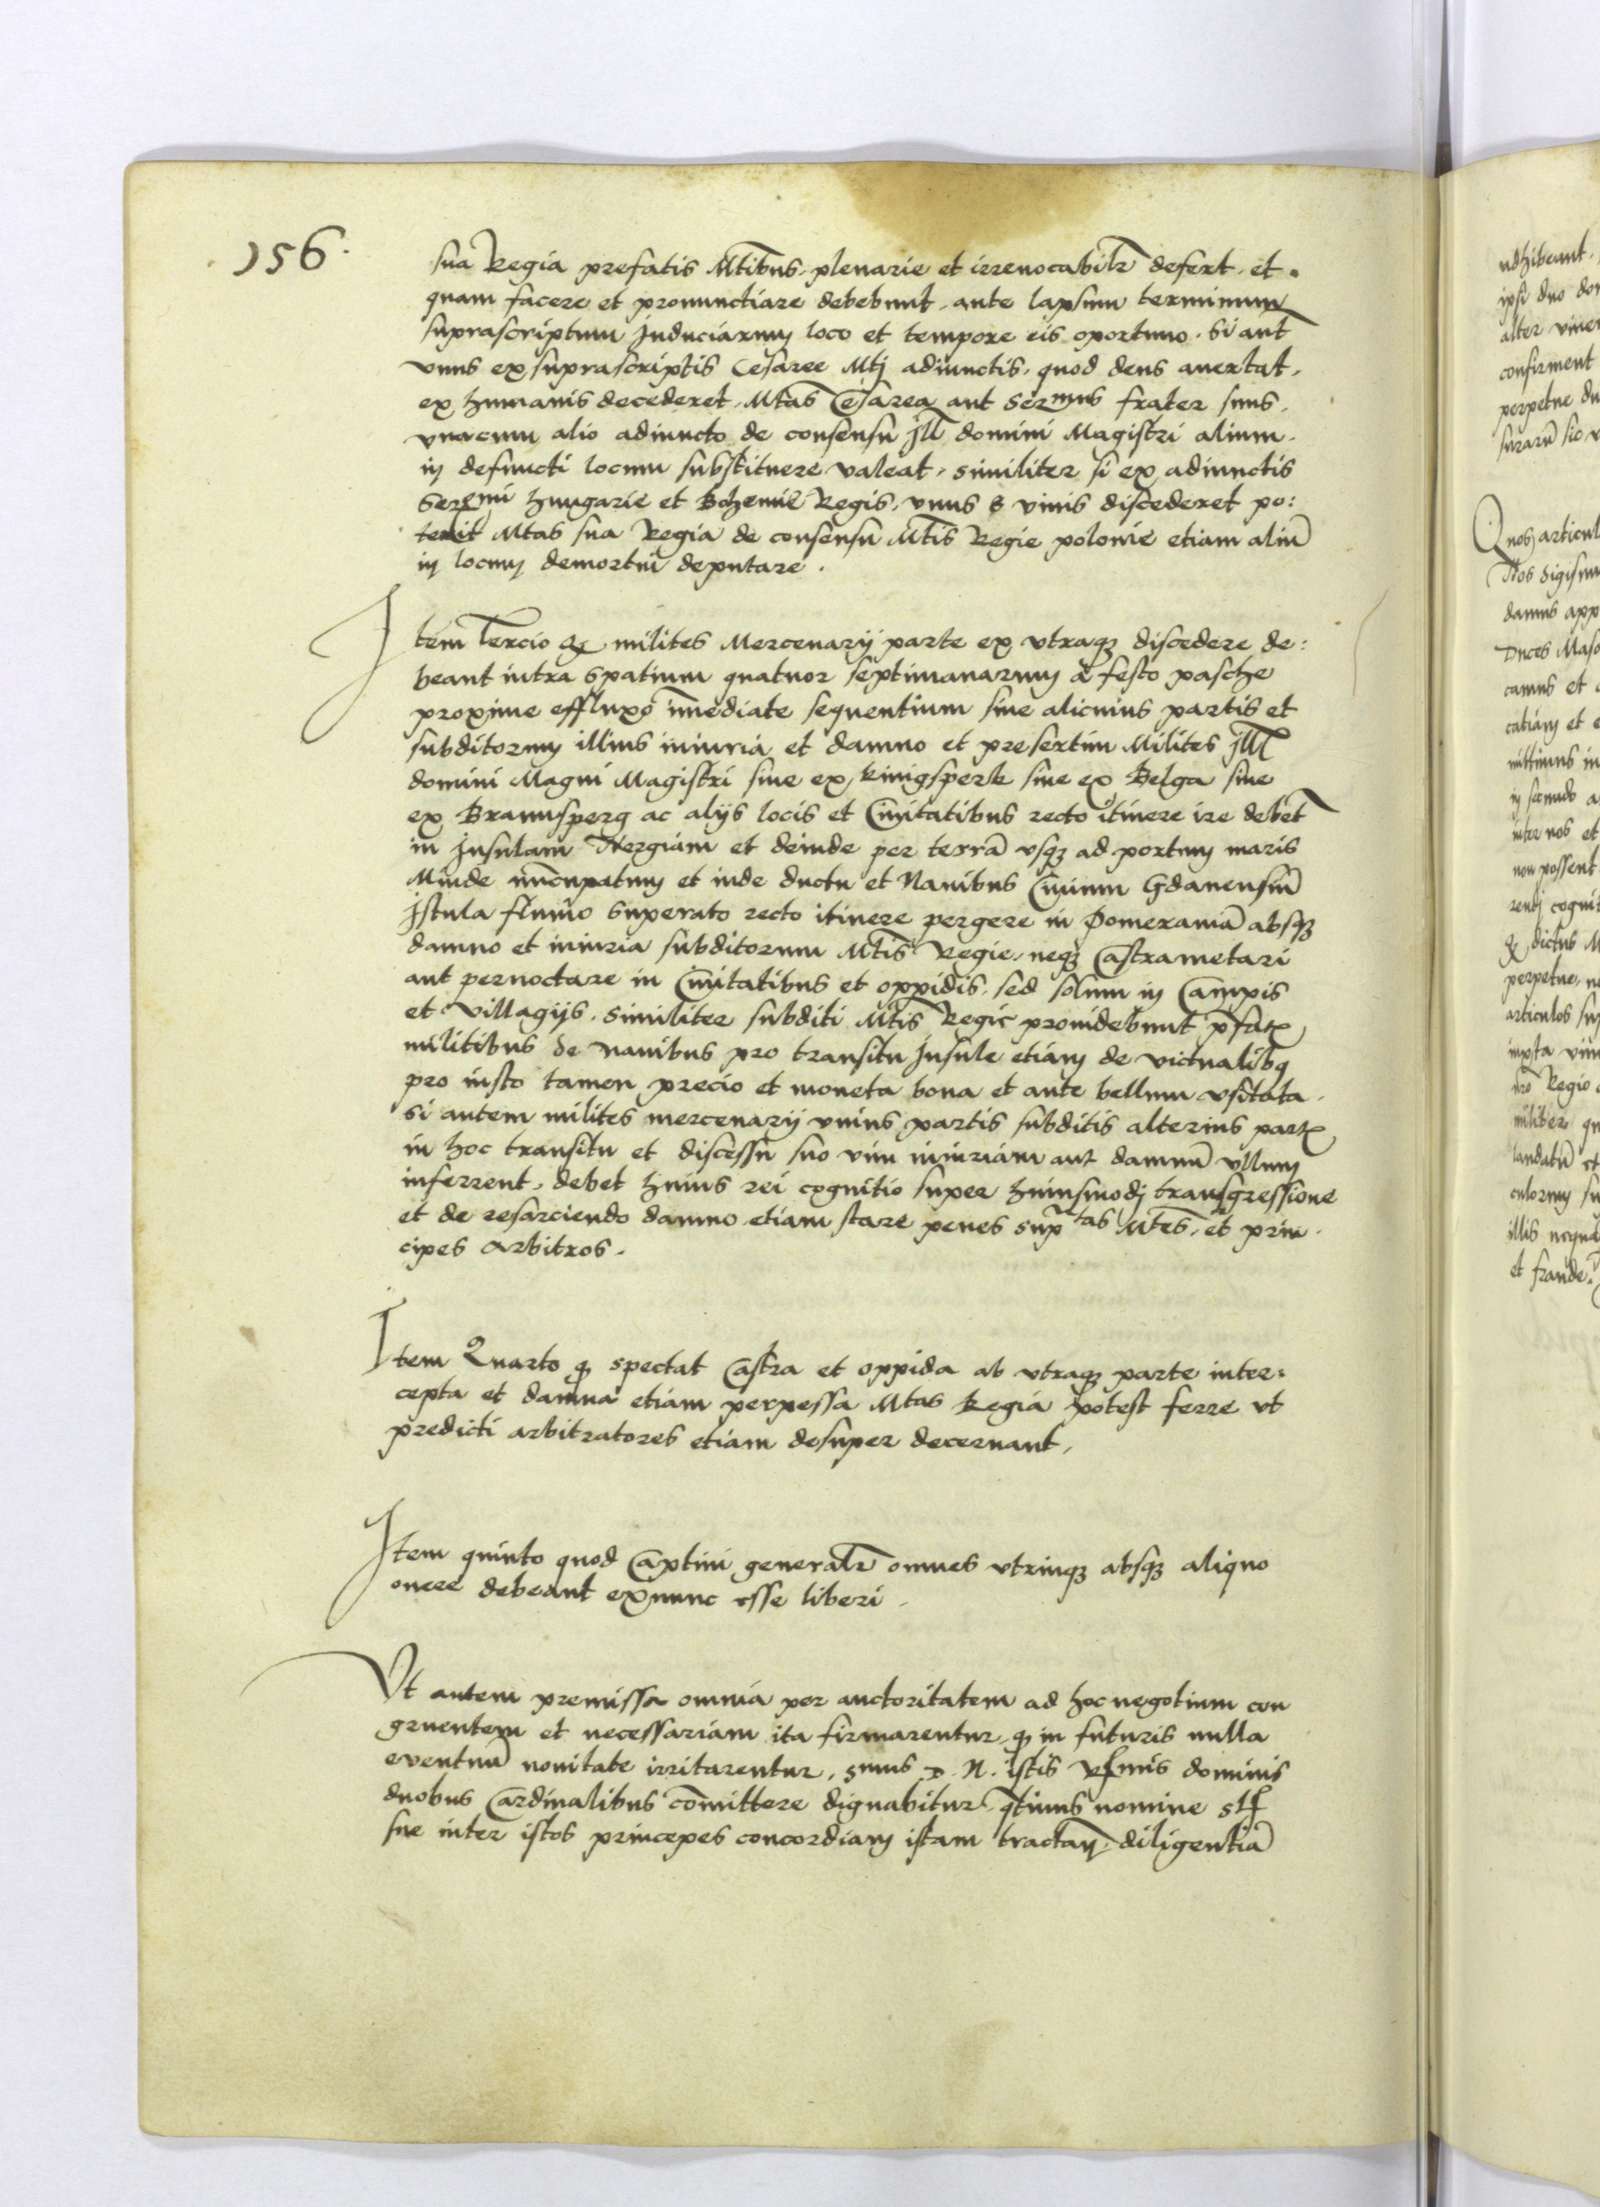 156.
sua Regia prefatis Mtibus plenarie et irrevocabilr defert, et
quam facere et pronunctiare debebunt, ante lapsum terminum
suprascriptum Induciarum loco et tempore eis oportuno. Si aut
vnus ex suprascriptis Cesaree Mtj adiunctis, quod deus auertat,
ex humanis decederet, Mtas Cesarea aut Sermus frater suus,
vnacum alio adiuncto de consensu Jll domini Magistri alium
in defuncti locum substituere valeat, similiter si ex adiunctis
Sermi Hungarie et Bohemie Regis, vnus e viuis discederet po:
terit Mtas sua Regia de consensu Mtis Regie polonie etiam aliu
in locum demortui deputare.
Item Tercio q milites Mercenarij parte ex vtraq discedere de:
beant intra spatium quatuor septimanarum a festo pasche
proxime effluxo immediate sequentium sine alicuius partis et
subditorum illius iniuria et damno et presertim Milites Jll
domini Magni Magistri siue ex kinigsperk siue ex Belga siue
ex Braunsperg ac alijs locis et Ciuitatibus recto itinere ire debet
in Insulam Nergiam et deinde per terra vsq ad portum maris
Minde nucupatum et inde ductu et Nauibus Ciuium Gdanensiu
Istula fluuio superato recto itinere pergere in Pomerania absq
damno et iniuria subditorum Mtis Regie, neq Castrametari
aut pernoctare in Ciuitatibus et oppidis, sed solum in Campis
et villagijs. similiter subditi Mtis Regie prouidebunt pfat
militibus de nauibus pro transitu Insule etiam de victualibq
pro iusto tamen precio et moneta bona et ante bellum vsitata.
Si autem milites mercenarij vnius partis subditis alterius part
in hoc transitu et discessu suo vim iniuriam aut damnu vllum
inferrent, debet huius rei cognitio super huiusmodj transgressione
et de resarciendo damno etiam stare penes suptas Mtes, et prin
cipes Arbitros.
Item Quarto q spectat Castra et oppida ab vtraq parte inter:
cepta et damna etiam perpessa Mtas Regia potest ferre vt
predicti arbitratores etiam desuper decernant,
Item quinto quod Captiui generalr omnes vtrinq absq aliquo
onere debeant exnunc esse liberi.
Vt autem premissa omnia per auctoritatem ad hoc negotium con
gruentem et necessariam ita firmarentur, q in futuris nulla
euentuu nouitate irritarentur, Smus D. N. istis Rmis dominis
duobus Cardinalibus comittere dignabitur, qtinus nomine Stis
sue inter istos principes concordiam istam tractan, diligentia